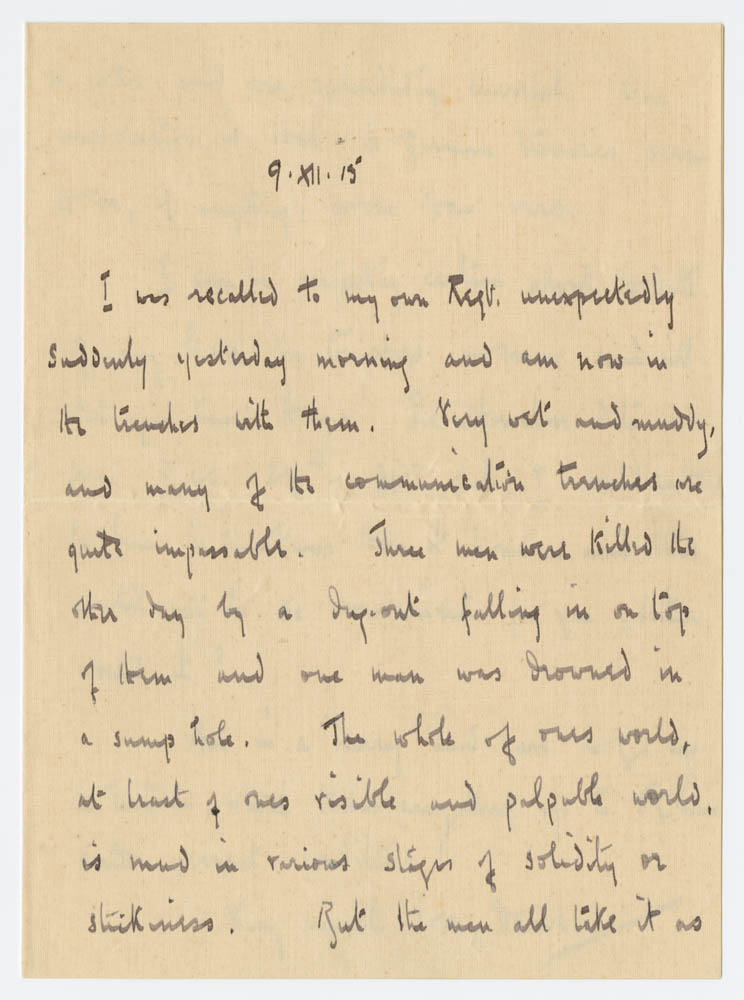 9.XII.15
I was recalled to my own Regt. unexpectedly
suddenly yesterday morning and am now in
the trenches with them. Very wet and muddy,
and many of the communication trenches are
quite impassable. Three men were killed the
other day by a dug-out falling in on top
of them and one man was drowned in
a sump hole. The whole of ones world,
at least of ones visible and palpable world,
is mud in various stages of solidity or
stickiness. But the men all take it as